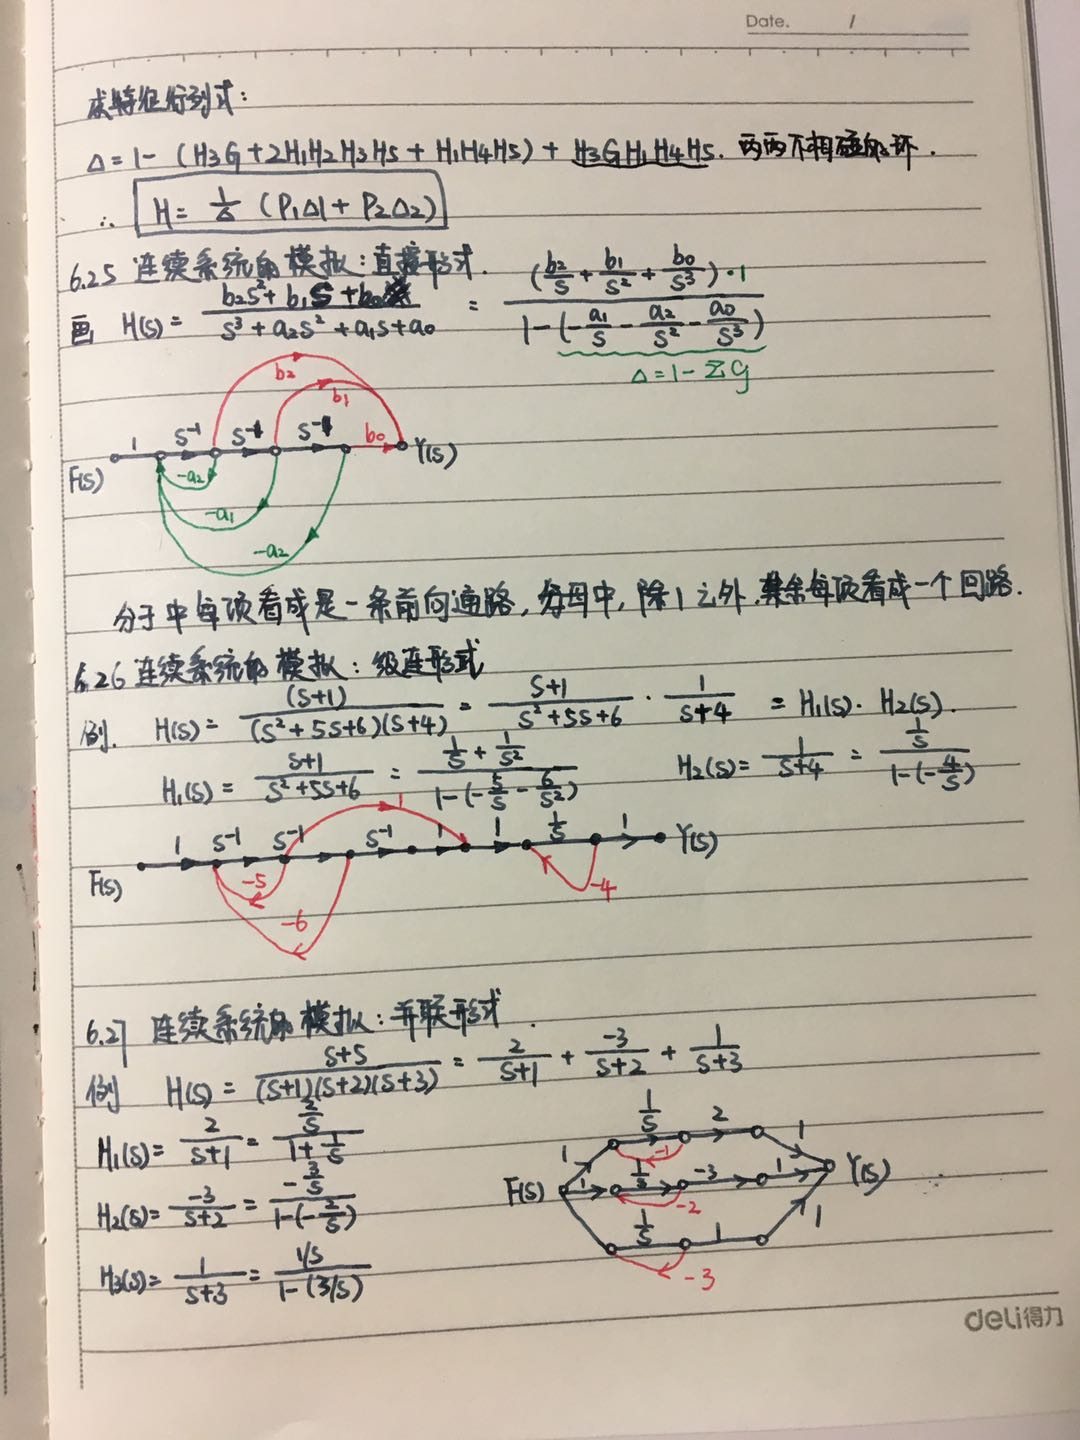 Date. /
求特征行列式:
Δ=1-(H3G+2H1H2H3H5+H1H4H5)+H3GH1H4H5. 两两不相碰的环.
∴ H= 1/Δ (P1Δ1+P2Δ2)
6.25 连续系统的模拟:直接形式.
画 H(s)= (b2s²+b1s+b0)/(s³+a2s²+a1s+a0) = ((b2/s+b1/s²+b0/s³)·1)/(1-(-a1/s-a2/s²-a0/s³))
Δ=1-Σg
b2
b1
1 s⁻¹ s⁻¹ s⁻¹ b0 Y(s)
F(s) -a2
-a1
-a2
分子中每项看成是一条前向通路,分母中,除1之外,其余每项看成一个回路.
6.26 连续系统的模拟:级连形式
例. H(s)= (s+1)/((s²+5s+6)(s+4)) = (s+1)/(s²+5s+6) · 1/(s+4) = H1(s)·H2(s).
H1(s)= (s+1)/(s²+5s+6) = (1/s+1/s²)/(1-(-5/s-6/s²)) H2(s)= 1/(s+4) = (1/s)/(1-(-4/s))
1
1 s⁻¹ s⁻¹ s⁻¹ 1 1 1/s 1 Y(s)
F(s) -5 -4
-6
6.27 连续系统的模拟:并联形式.
例 H(s)= (s+5)/((s+1)(s+2)(s+3)) = 2/(s+1) + -3/(s+2) + 1/(s+3)
H1(s)= 2/(s+1) = (2/s)/(1+1/s)
H2(s)= -3/(s+2) = (-3/s)/(1-(-2/s))
H3(s)= 1/(s+3) = (1/s)/(1-(3/s))
1 1/s 2 1
-1
F(s) 1 1/s -3 1 Y(s)
-2
1/s 1 1
-3
deli得力